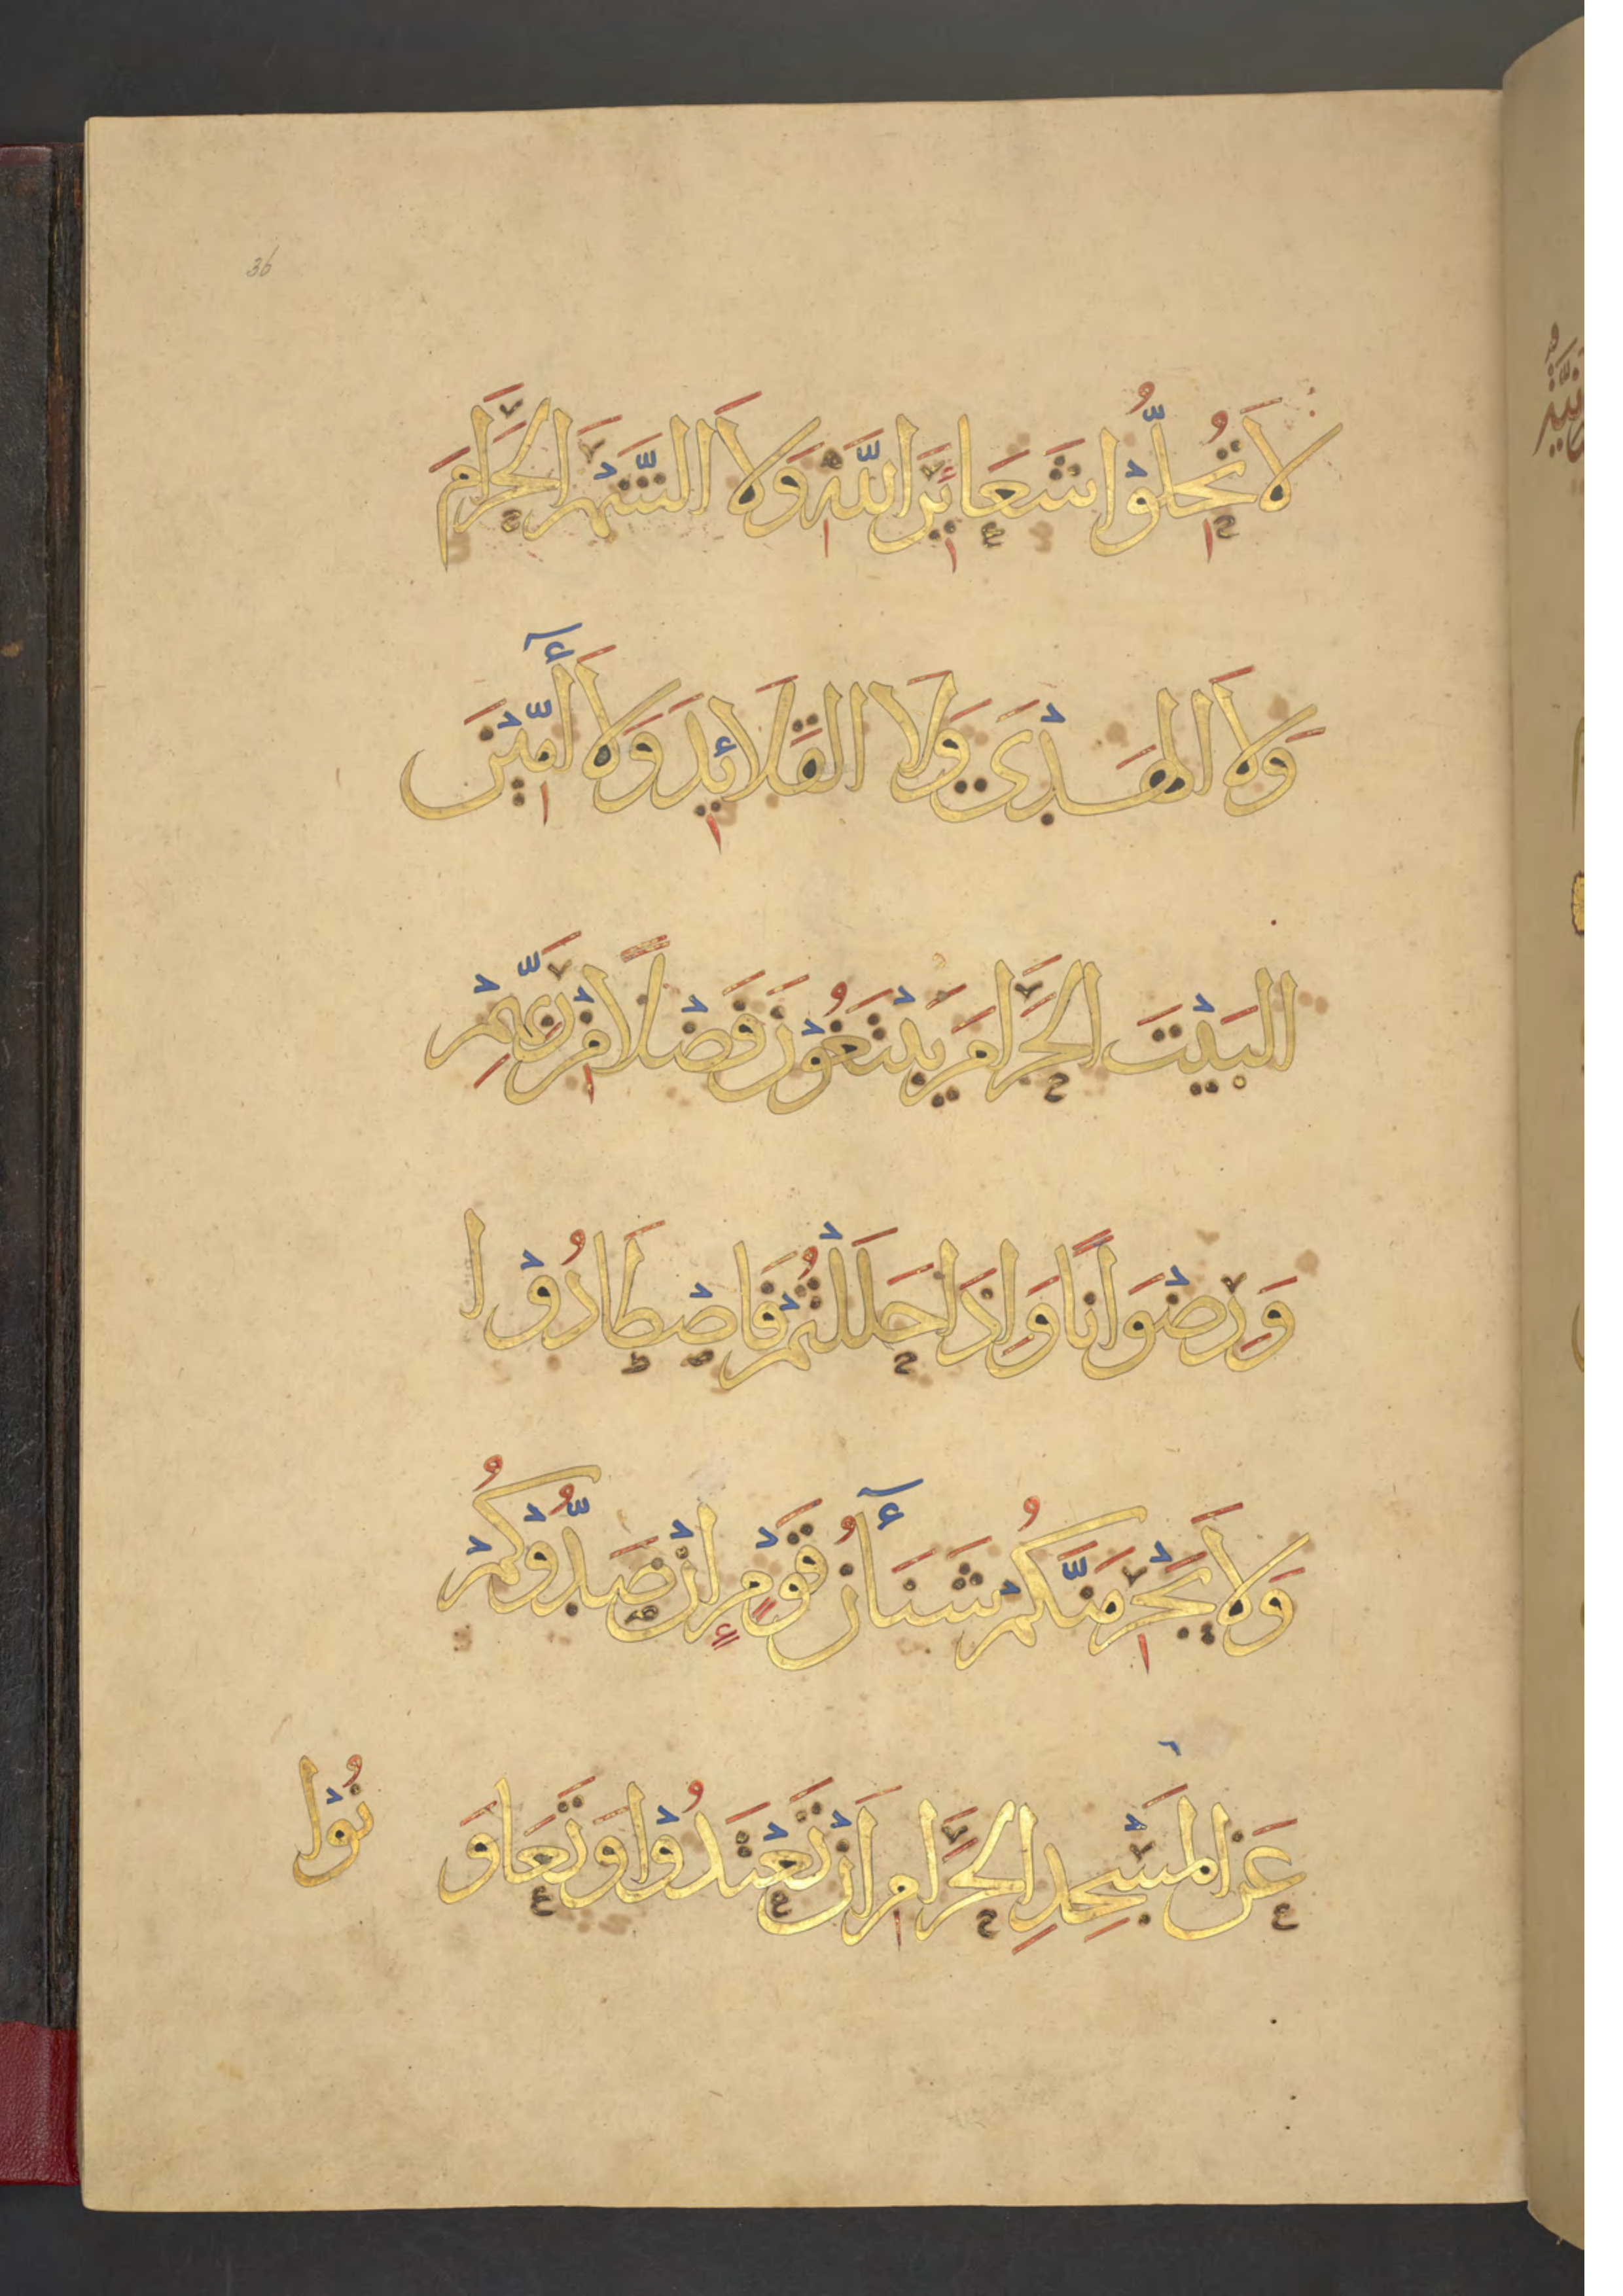 36
لَا تُحِلُّوْا شَعَائِرَ اللّٰهِ وَلَا الشَّهْرَ الْحَرَامَ
وَلَا الْهَدْيَ وَلَا الْقَلَائِدَ وَلَا آمِّيْنَ
الْبَيْتَ الْحَرَامَ يَبْتَغُوْنَ فَضْلًا مِنْ رَبِّهِمْ
وَرِضْوَانًا وَاِذَا حَلَلْتُمْ فَاصْطَادُوْا
وَلَا يَجْرِمَنَّكُمْ شَنَآنُ قَوْمٍ اِنْ صَدُّوْكُمْ
عَنِ الْمَسْجِدِ الْحَرَامِ اَنْ تَعْتَدُوْا وَتَعَاوَ
نُوْا